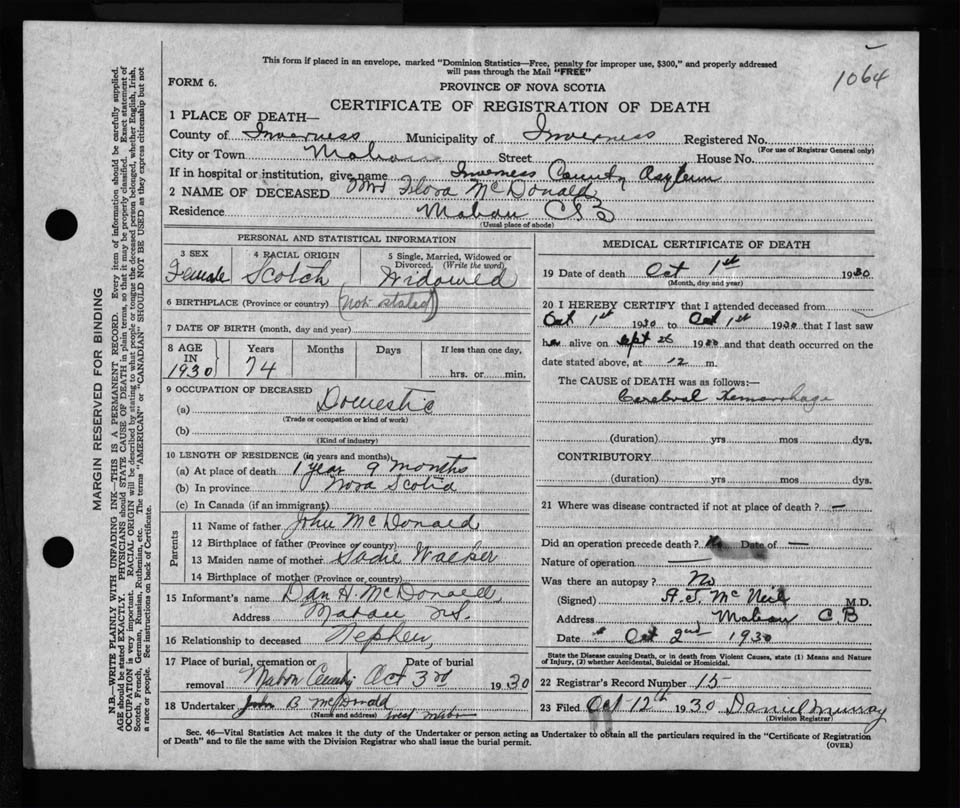 This form if placed in an envelope, marked "Dominion Statistics—Free, penalty for improper use, $300," and properly addressed
will pass through the Mail "FREE"
1064
FORM 6.
PROVINCE OF NOVA SCOTIA
CERTIFICATE OF REGISTRATION OF DEATH
1 PLACE OF DEATH—
County of Inverness Municipality of Inverness Registered No.
(For use of Registrar General only)
City or Town Mabou Street House No.
If in hospital or institution, give name Inverness County Asylum
2 NAME OF DECEASED Mrs Flora McDonald
Residence Mabou C B
(Usual place of abode)
PERSONAL AND STATISTICAL INFORMATION
3 SEX 4 RACIAL ORIGIN 5 Single, Married, Widowed or Divorced. (Write the word)
Female Scotch Widowed
6 BIRTHPLACE (Province or country) (Not stated)
7 DATE OF BIRTH (month, day and year)
8 AGE IN 1930 Years 74 Months Days If less than one day, hrs. or min.
9 OCCUPATION OF DECEASED
(a) Domestic
(Trade or occupation or kind of work)
(b)
(Kind of industry)
10 LENGTH OF RESIDENCE (in years and months)
(a) At place of death 1 year 9 months
(b) In province Nova Scotia
(c) In Canada (if an immigrant)
Parents
11 Name of father John McDonald
12 Birthplace of father (Province or country)
13 Maiden name of mother Sadie Walker
14 Birthplace of mother (Province or country)
15 Informant's name Dan H. McDonald
Address Mabou N.S.
16 Relationship to deceased Nephew
17 Place of burial, cremation or removal Mabou Date of burial Oct 3rd 1930
18 Undertaker John B McDonald
(Name and address) West Mabou
MEDICAL CERTIFICATE OF DEATH
19 Date of death Oct 1st 1930
(Month, day and year)
20 I HEREBY CERTIFY that I attended deceased from
Oct 1st 1930 to Oct 1st 1930 that I last saw
her alive on Sept 26 1930 and that death occurred on the
date stated above, at 12 m.
The CAUSE OF DEATH was as follows:—
Cerebral Hemorrhage
(duration) yrs mos dys.
CONTRIBUTORY
(duration) yrs mos dys.
21 Where was disease contracted if not at place of death? —
Did an operation precede death? No Date of —
Nature of operation —
Was there an autopsy? No
(Signed) A. J. McNeil M.D.
Address Mabou C B
Date Oct 2nd 1930
State the Disease causing Death, or in death from Violent Causes, state (1) Means and Nature
of Injury, (2) whether Accidental, Suicidal or Homicidal.
22 Registrar's Record Number 15
23 Filed Oct 12th 1930 Daniel Murray
(Division Registrar)
Sec. 46—Vital Statistics Act makes it the duty of the Undertaker or person acting as Undertaker to obtain all the particulars required in the "Certificate of Registration
of Death" and to file the same with the Division Registrar who shall issue the burial permit.
(OVER)
MARGIN RESERVED FOR BINDING
N.B.—WRITE PLAINLY WITH UNFADING INK—THIS IS A PERMANENT RECORD. Every item of information should be carefully supplied.
AGE should be stated EXACTLY. PHYSICIANS should STATE CAUSE OF DEATH in plain terms, so that it may be properly classified. Exact statement of
OCCUPATION is very important. RACIAL ORIGIN will be described by stating to what people or tongue the deceased person belonged, whether English, Irish,
Scotch, French, German, Russian, Ruthenian, etc. The terms "AMERICAN" or "CANADIAN" SHOULD NOT BE USED as they express citizenship but not
a race or people. See instructions on back of Certificate.